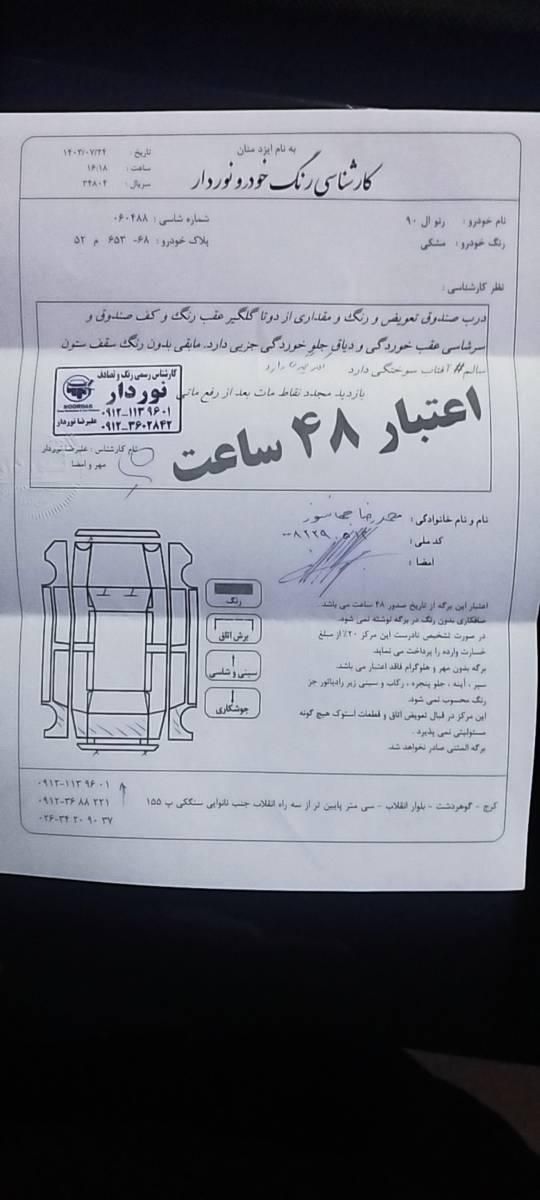 به نام ایزد منان
کارشناسی رنگ خودرو نوردار
تاریخ : ۱۴۰۳/۰۷/۲۴
ساعت : ۱۶:۱۸
سریال : ۳۴۸۰۴
نام خودرو : رنو ال ۹۰
شماره شاسی : ۰۶۰۴۸۸
رنگ خودرو : مشکی
پلاک خودرو : ۶۸- ۶۵۳ م ۵۲
نظر کارشناسی :
درب صندوق تعویض و رنگ و مقداری از دوتا گلگیر عقب رنگ و کف صندوق و
سرشاسی عقب خوردگی و دیاق جلو خوردگی جزیی دارد. مابقی بدون رنگ سقف ستون
سالم# آفتاب سوختگی دارد
بازدید مجدد نقاط مات بعد از رفع ماتی
اعتبار ۴۸ ساعت
کارشناس رسمی رنگ و تصادف
نوردار
NOORDAR
۰۹۱۲-۱۱۳ ۹۶۰۱
۰۹۱۲-۳۶۰۲۸۴۲
علیرضا نوردار
نام کارشناس : علیرضا نوردار
مهر و امضا
نام و نام خانوادگی :
کد ملی :
امضا :
رنگ
برش اتاق
سینی و شاسی
جوشکاری
اعتبار این برگه از تاریخ صدور ۴۸ ساعت می باشد.
صافکاری بدون رنگ در برگه نوشته نمی شود.
در صورت تشخیص نادرست این مرکز ۲۰٪ از مبلغ
خسارت وارده را پرداخت می نماید.
برگه بدون مهر و هلوگرام فاقد اعتبار می باشد.
سپر ، آینه ، جلو پنجره ، رکاب و سینی زیر رادیاتور جز
رنگ محسوب نمی شود.
این مرکز در قبال تعویض اتاق و قطعات استوک هیچ گونه
مسئولیتی نمی پذیرد .
برگه المثنی صادر نخواهد شد.
کرج - گوهردشت - بلوار انقلاب - سی متر پایین تر از سه راه انقلاب جنب نانوایی سنگکی پ ۱۵۵
۰۹۱۲-۱۱۳ ۹۶ ۰۱
۰۹۱۲-۳۶ ۸۸ ۲۲۱
۰۲۶-۳۴ ۲۰ ۹۰ ۳۷